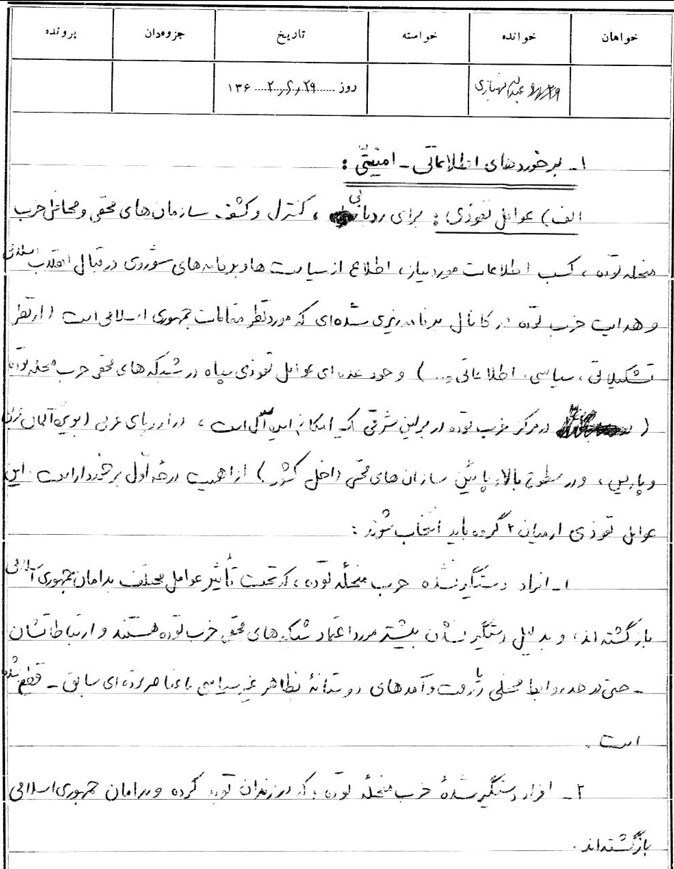 خواهان خوانده خواسته تاریخ جزوه‌دان پرونده
روز ۲۹ر۶ر۱۳۶۲
۱- برخوردهای اطلاعاتی - امنیتی :
الف) عوامل نفوذی : برای ردیابی ، کنترل و کشف سازمان‌های مخفی و مخاطی حزب
منحله توده ، کسب اطلاعات مورد نیاز ، اطلاع از سیاست‌ها و برنامه‌های شوروی در قبال انقلاب اسلامی
و هدایت حزب توده در کانال برنامه‌ریزی شده‌ای که مورد نظر مقامات جمهوری اسلامی است (از نظر
تشکیلاتی ، سیاسی ، اطلاعاتی و ...) وجود عده‌ای عوامل نفوذی سپاه در شبکه‌های مخفی حزب منحله توده
( در مرکز حزب توده در برلین شرقی که امکانم این است ، در اروپای غربی (بویژه آلمان غربی
و پاریس ، و در سطوح بالا و پائین سازمان‌های مخفی داخل کشور) از اهمیت درجه اول برخوردار است . این
عوامل نفوذی از میان ۲ گروه باید انتخاب شوند :
۱- افراد دستگیر نشده حزب منحله توده ، که تحت تأثیر عوامل مختلف به دامان جمهوری اسلامی
بازگشته‌اند ، و به دلیل دستگیر نشدن بیشتر مورد اعتماد شبکه‌های مخفی حزب توده هستند و ارتباطاتشان
- حتی در حد روابط محفلی یا رفت و آمدهای دوستانهٔ بظاهر غیر سیاسی با عناصر توده‌ای سابق - قطع نشده
است .
۲- افراد دستگیر شدهٔ حزب منحلهٔ توده ، که در زندان توبه کرده و به دامان جمهوری اسلامی
بازگشته‌اند .